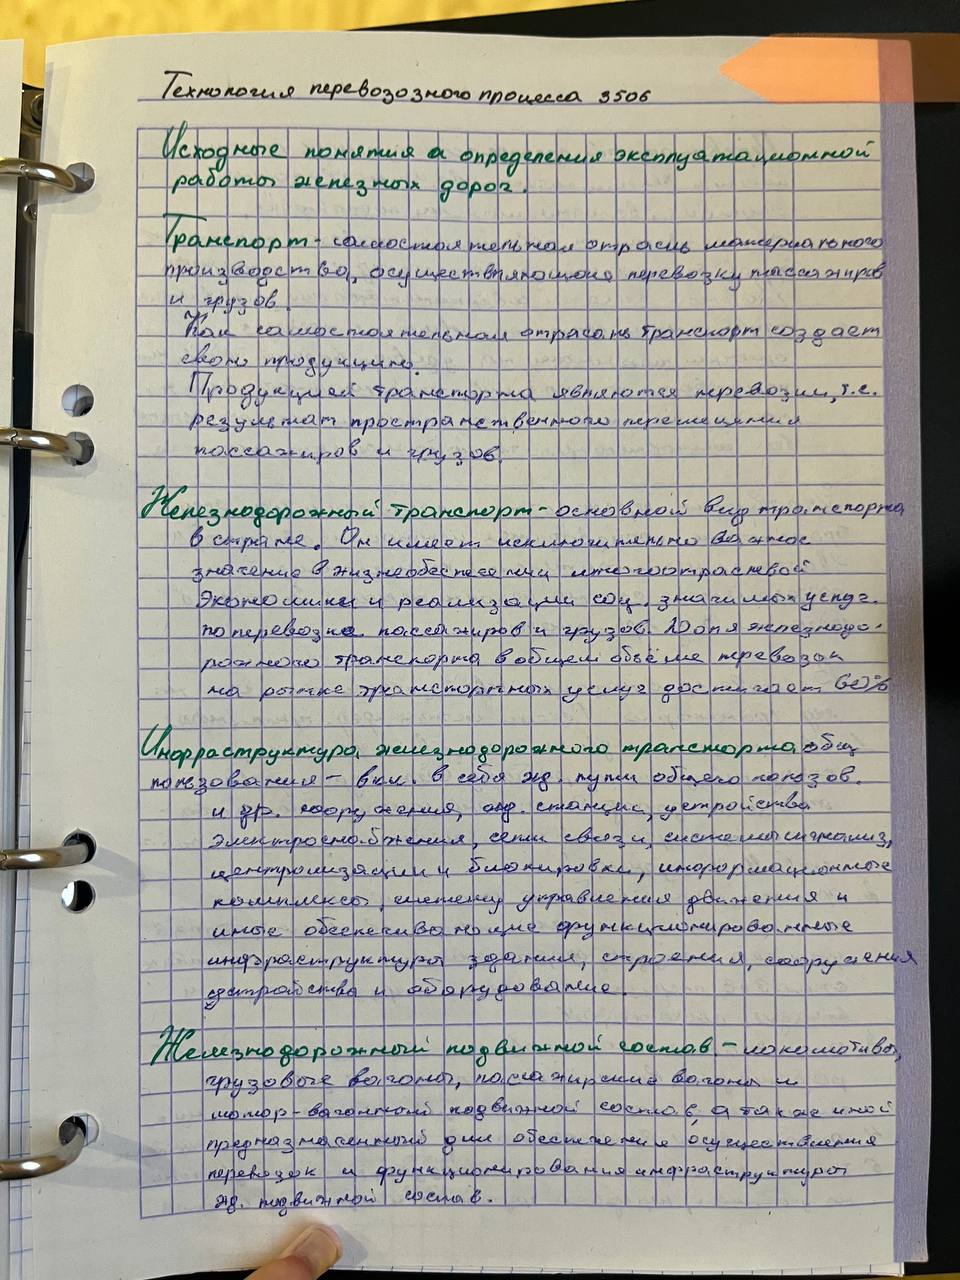 Технология перевозозного процесса 3506
Исходные понятия а определения эксплуатационной
работы железных дорог.
Транспорт - самостоятельная отрасль материального
производства, осуществляющая перевозку пассажиров
и грузов.
Как самостоятельная отрасль транспорт создает
свою продукцию.
Продукцией транспорта являются перевозки, т.е.
результат пространственного перемещения
пассажиров и грузов.
Железнодорожный транспорт - основной вид транспорта
в стране. Он имеет исключительно важное
значение в жизнеобеспечении многоотраслевой
экономики и реализации соц. значимых услуг.
по перевозке пассажиров и грузов. Доля железнодо-
рожного транспорта в общем объёме перевозок
на рынке транспортных услуг достигает 60%
Инфраструктура железнодорожного транспорта общ
ползования - вкл. в себя жд. пути общего ползов.
и др. сооружения, жд. станции, устройства
электроснабжения, сети связи, системы сигнализ,
централизации и блокировки, информационные
комплексы, систему управления движения и
иные обеспечивающие функционированные
инфраструктуры здания, строения, сооружения
устройства и оборудование.
Железнодорожный подвижной состав - локомотивы,
грузовые вагоны, пассажирские вагоны и
мотор-вагонный подвижной состав, а также иной
предназначенный для обеспечения осуществления
перевозок и функционирования инфраструктуры
жд. подвижной состав.